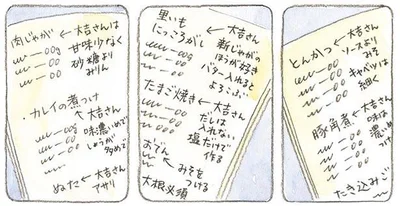 肉じゃが ← 大吉さんは
甘味少なく
砂糖より
みりん
・カレイの煮つけ
大吉さん
味濃いめで
しょうが
多めで
ぬた ← 大吉さん
アサリ
里いも
にっころがし
← 大吉さん
新じゃがの
ほうが好き
バター入れると
よろこぶ
たまご焼き ← 大吉さん
だしは
入れない
塩だけで
作る
おでん
← みそを
つける
大根必須
とんかつ ← 大吉さん
ソースより
みそ
キャベツは
細く
豚角煮 ← 大吉さん
味は
濃いめ
つけ
たき込みご